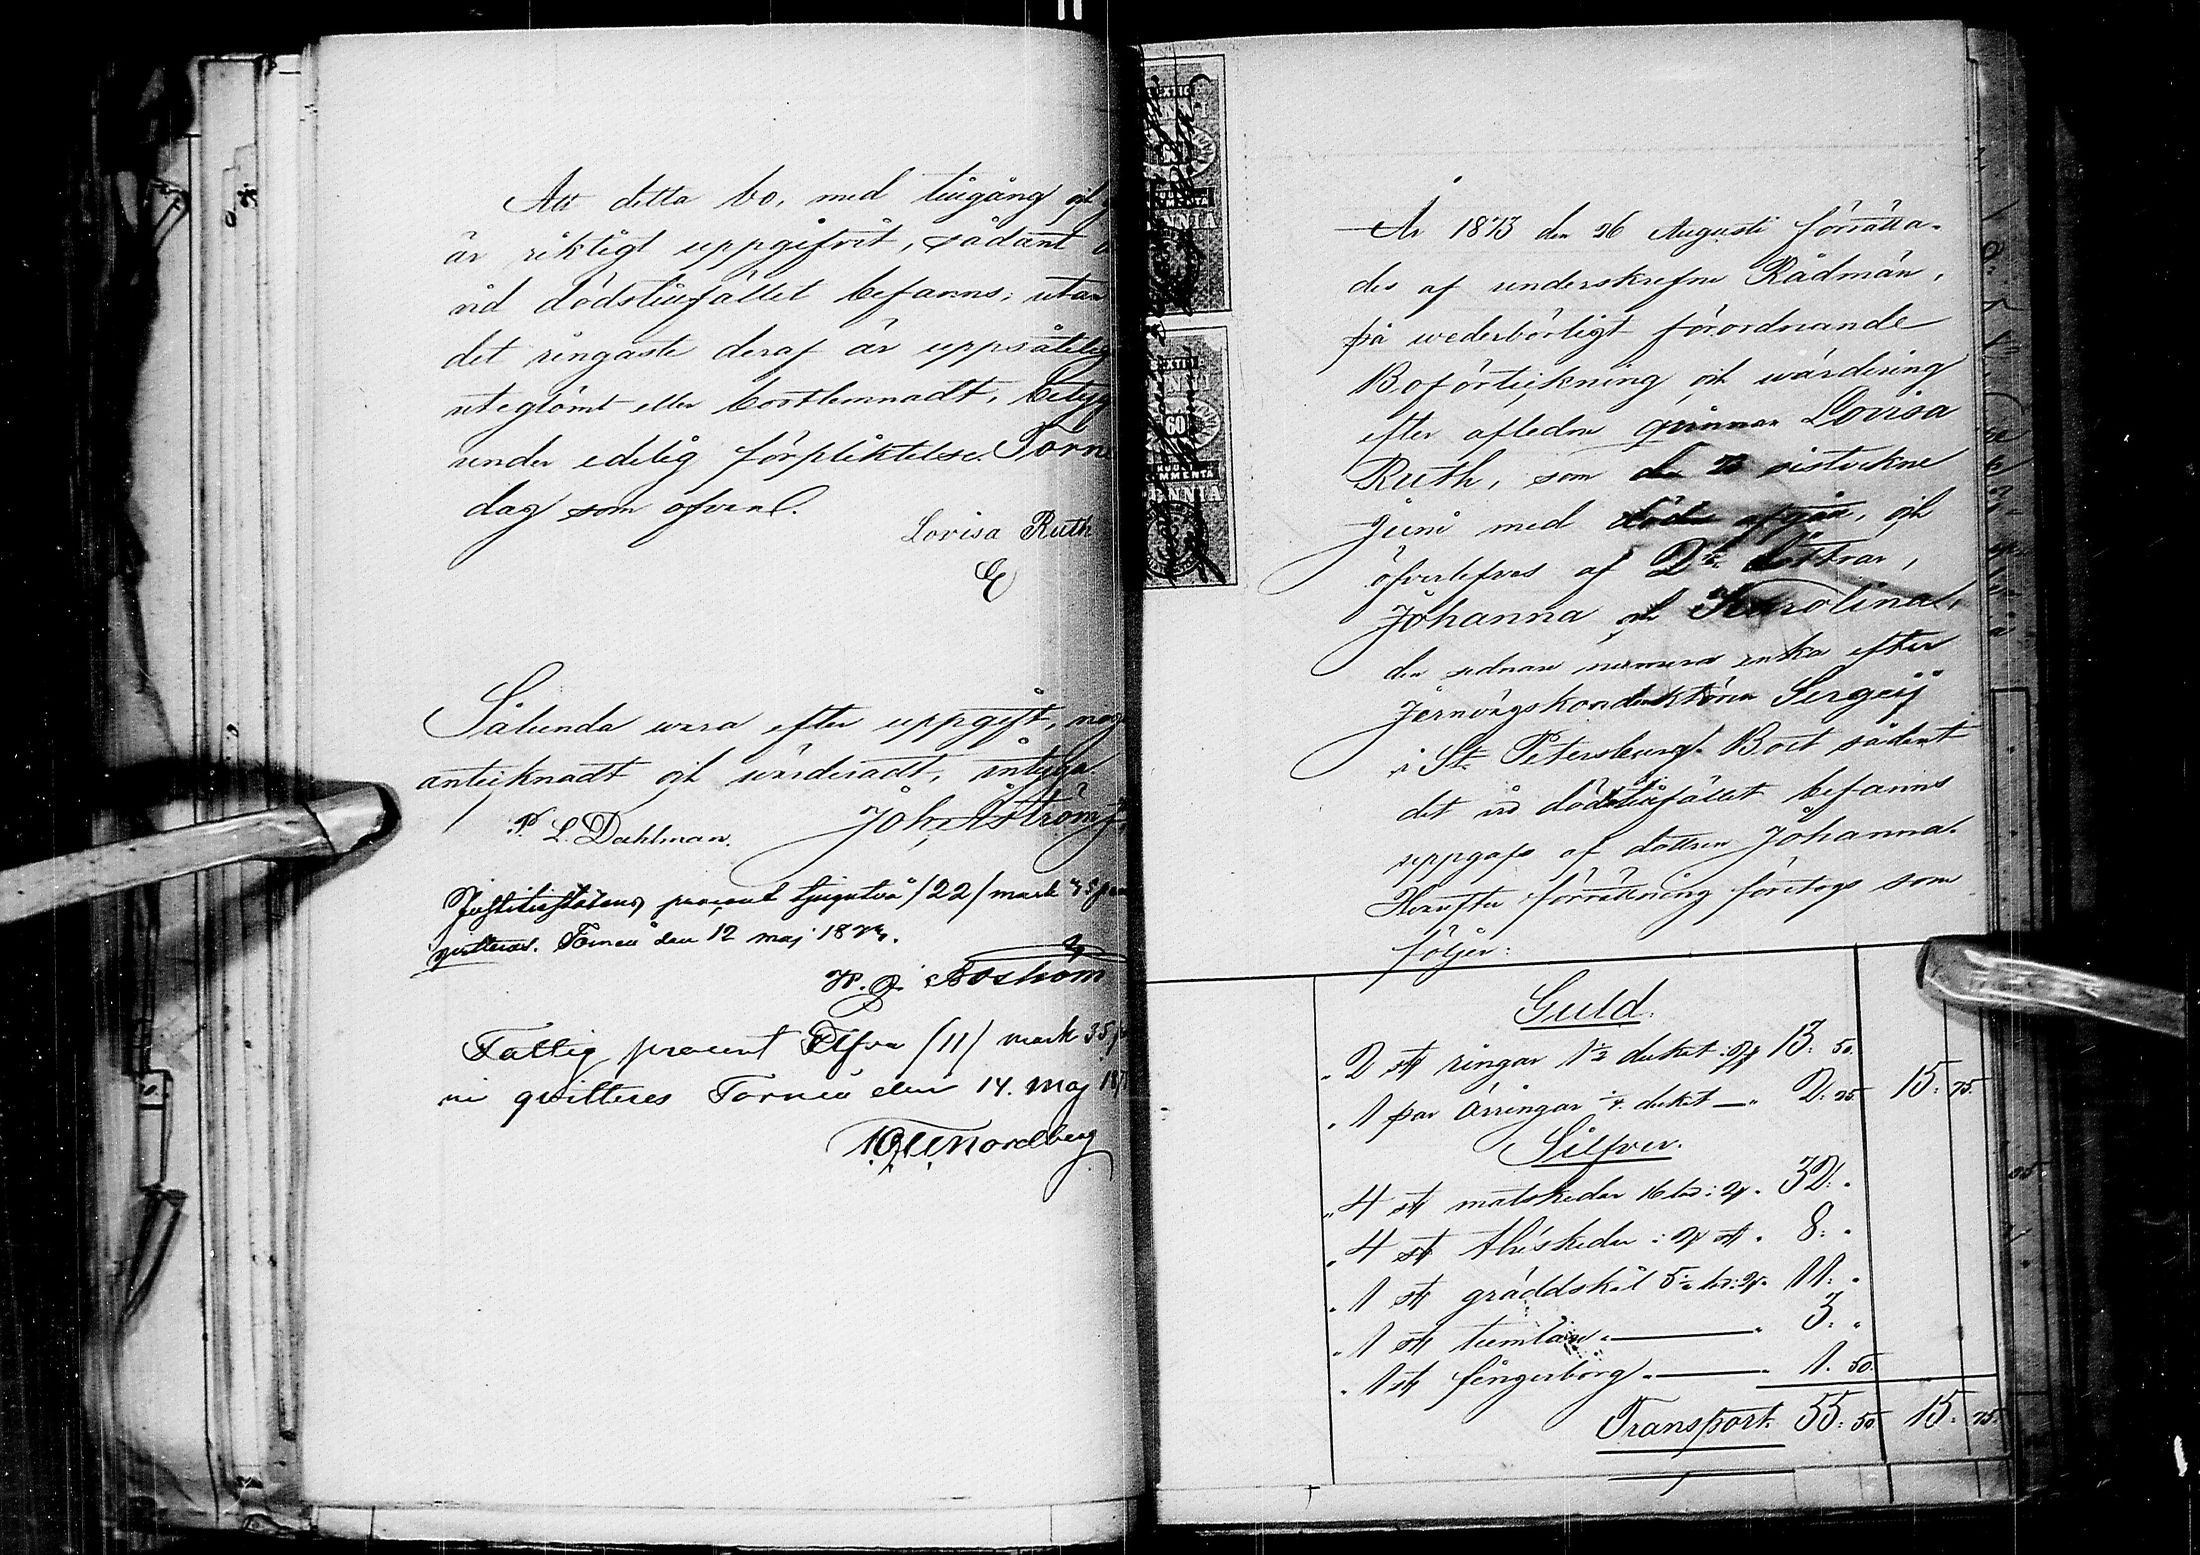 Att detta bo, med tillgång och
är riktigt uppgifvit, sådant
vid dödstillfället befanns, utan
det ringaste deraf är uppsåtelig
uteglömt eller bortlemnadt, betyg
under edelig förpliktelse. Torne
dag som ofvan.
Lovisa Ruth
Sålunda vara efter uppgift, nog
antecknadt och värderadt, intyga.
P L. Dahlman. Joh. Åström
Justitiestatens procent tjugutvå /22/ mark
qvitteras. Torneå den 12 maj
Boström
Fattig procent Elfva /11/ mark 35
ni qvitteras Torneå den 14. Maj 187
Nordberg
År 1873 den 26 Augusti förrätta-
des af underskrefne Rådmän,
på wederbörligt förordnande
Boförteckning och wärdering
efter afledne qvinnan Lovisa
Ruth, som den sistvekne
Juni med döden afgån, och
öfverlefves af 2ne döttrar,
Johanna och Karolina,
den sednare numera enka efter
Jernvägskonduktören Sergeij
i St. Petersburg. Boet sådant
det vid dödstillfället befanns
uppgafs af dottren Johanna.
Hvarefter förrättning företogs som
följer:
Guld.
" 2 st ringar 1½ dukat 13: 50.
" 1 par Örringar ¼ dukat — " 2: 25 15: 75.
Silfver.
" 4 st matskedar 16 lod " 32: "
" 4 st théskedar " 8: "
" 1 st gräddskål 5½ lod " 11: "
" 1 st tumlare " — " 3: "
" 1 st fingerborg " — " 1. 50.
Transport. 55: 50 15: 75.
60